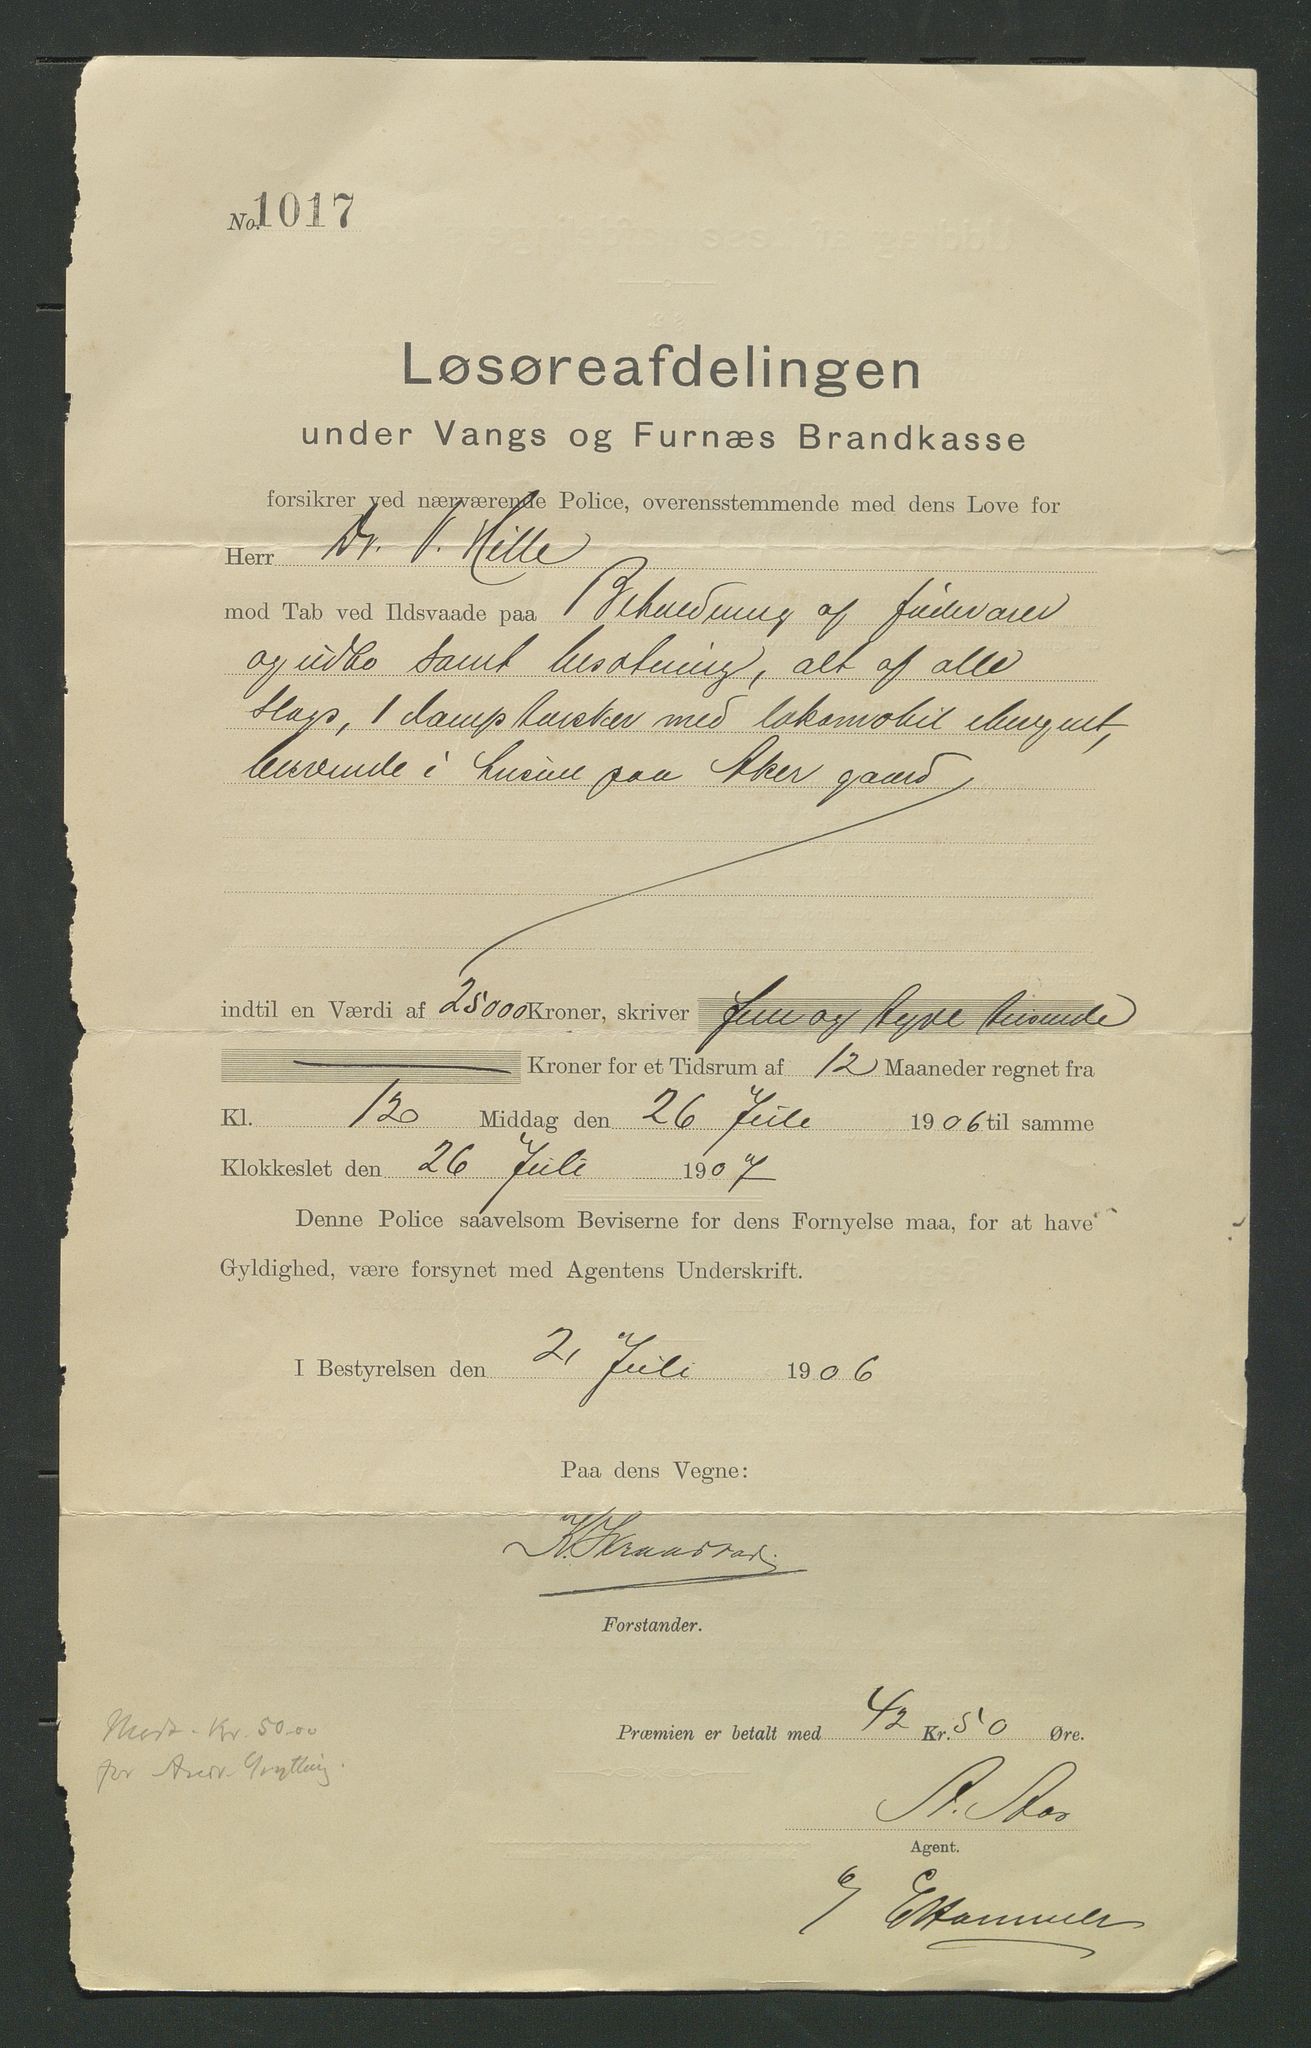 No. 1017
Løsøreafdelingen
under Vangs og Furnæs Brandkasse
forsikrer ved nærværende Police, overensstemmende med dens Love for
Herr Dr. V. Hille
mod Tab ved Ildsvaade paa Beholdning af
samt besætning, alt af alle
slags, 1 damptærsker med lokomobil
i husene paa Aker gaard
indtil en Værdi af 25000 Kroner, skriver fem og tyve tusende
Kroner for et Tidsrum af 12 Maaneder regnet fra
Kl. 12 Middag den 26 Juli 1906 til samme
Klokkeslet den 26 Juli 1907
Denne Police saavelsom Beviserne for dens Fornyelse maa, for at have
Gyldighed, være forsynet med Agentens Underskrift.
I Bestyrelsen den Juli 1906
Paa dens Vegne:
Forstander.
Præmien er betalt med 42 Kr. 50 Øre.
Agent.
Kr. 50.00
for